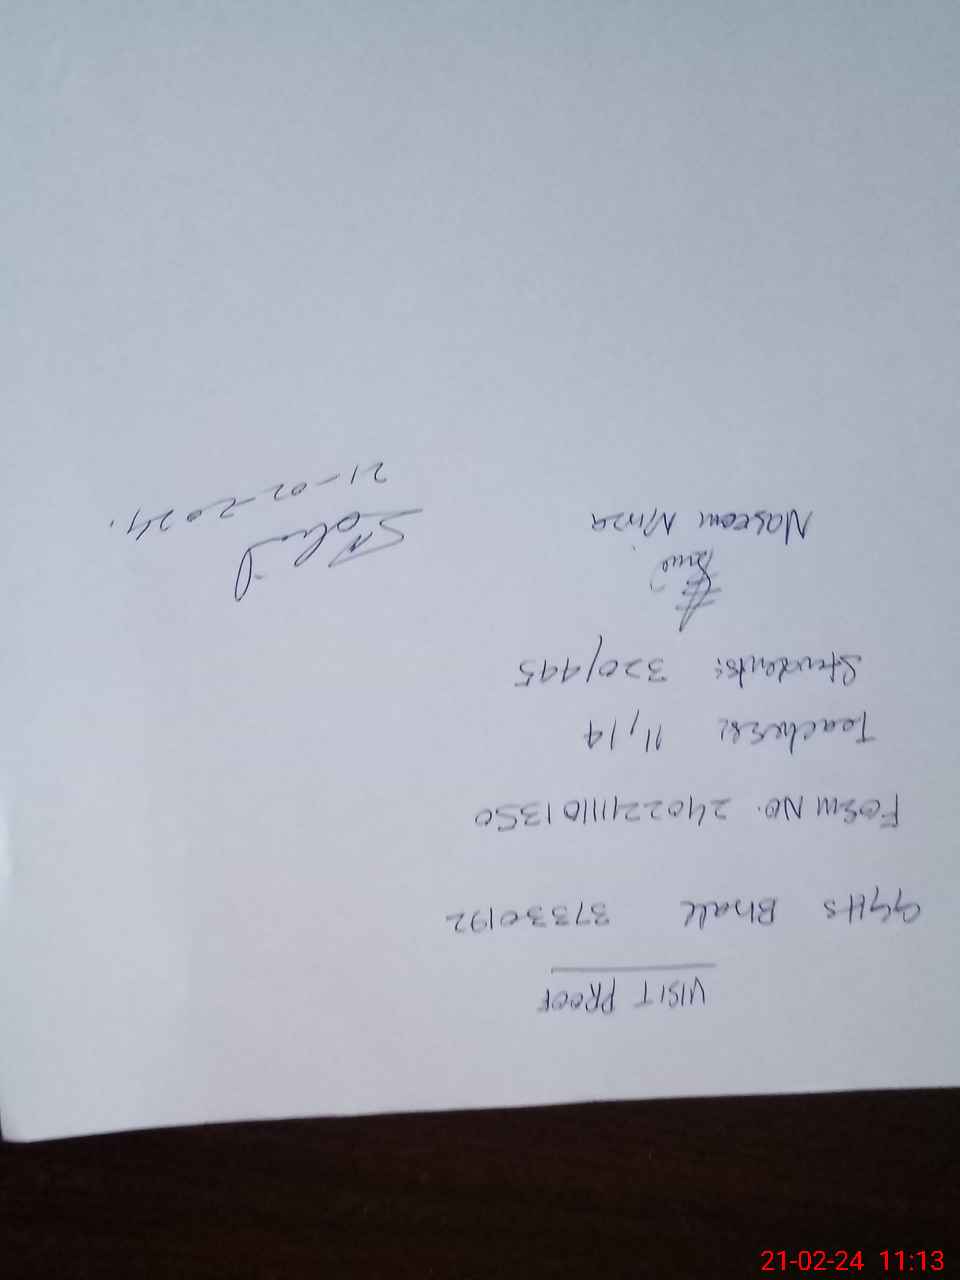 VISIT PROOF
GGHS Bhall 37330192
Form No. 24022111101350
Teachers: 11,14
Students: 320/445
Naseem Mirza
21-02-2024.
21-02-24 11:13